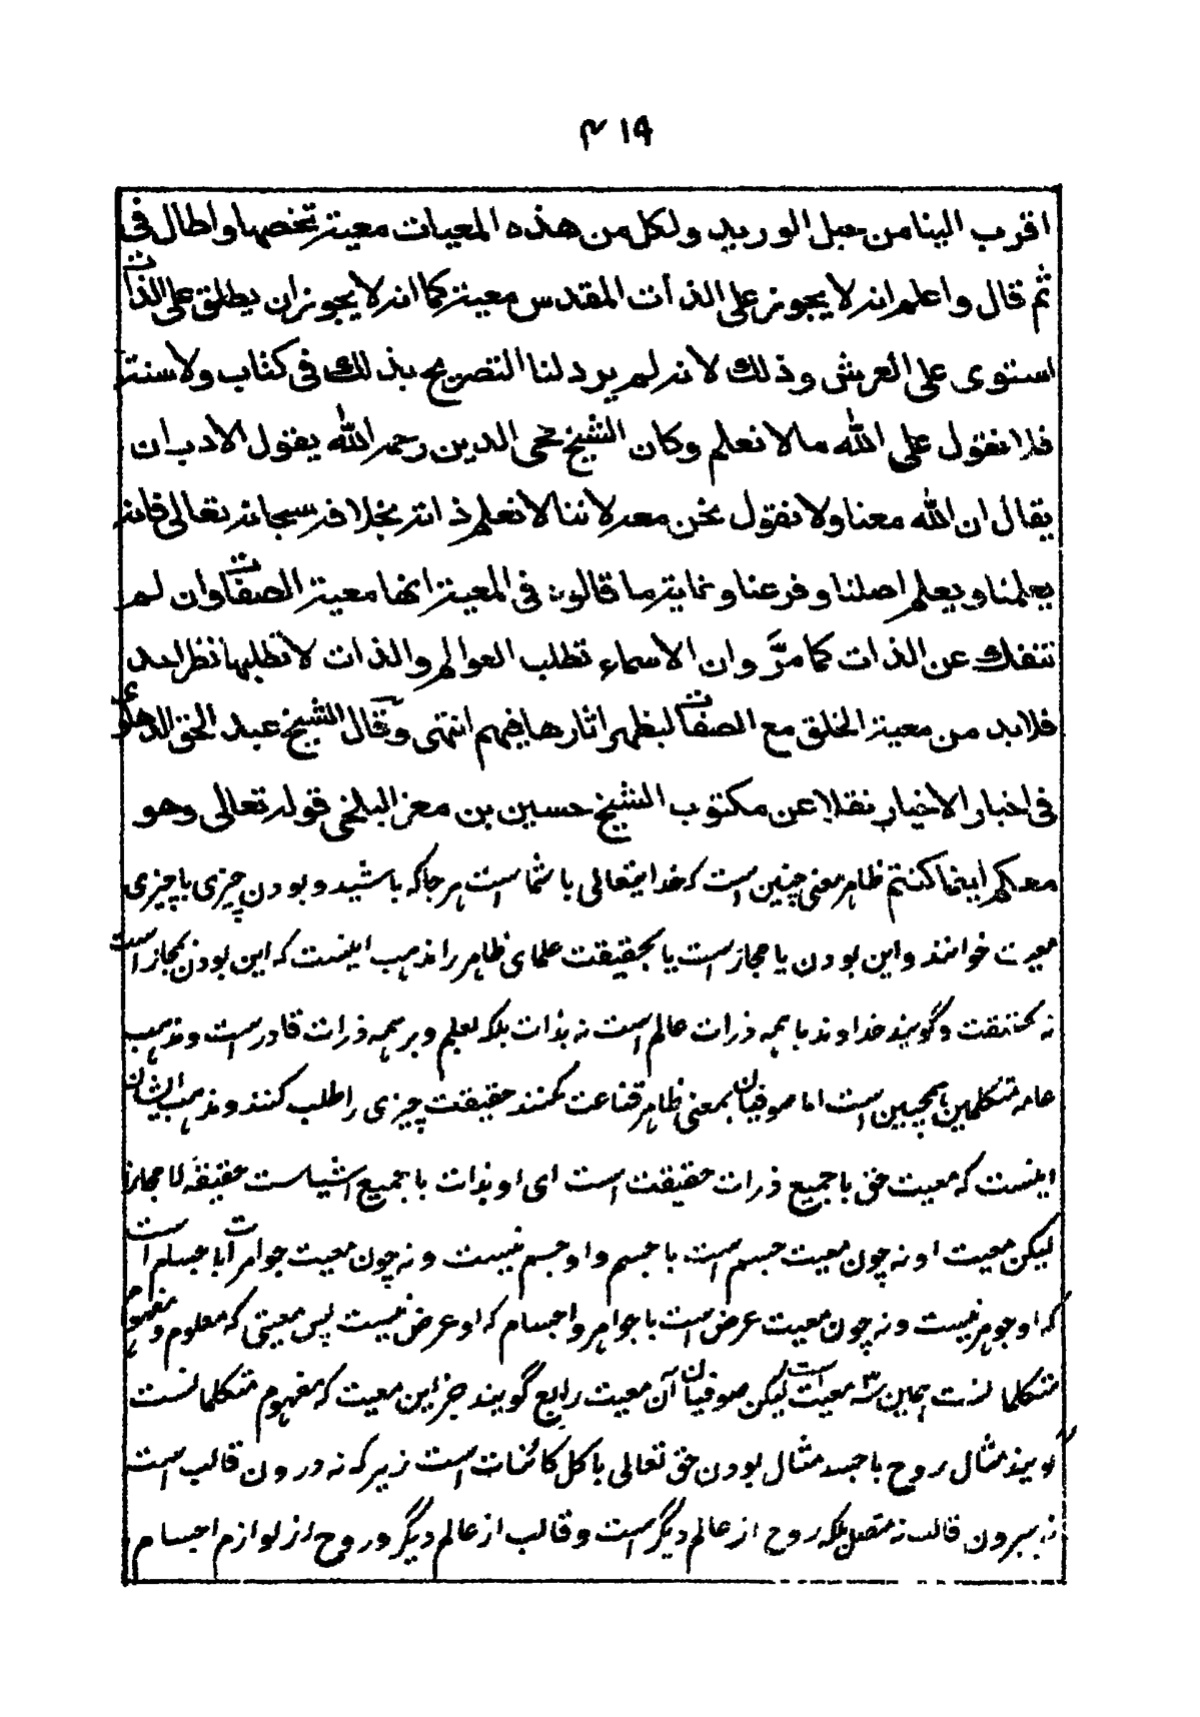 ۴۱۹
اقرب الينا من حبل الوريد ولكل من هذه المعيات معية تخصها واطال فى
ثم قال واعلم انه لا يجوز على الذات المقدس معية كما انه لا يجوز ان يطلق على الذات
استوى على العرش وذلك لانه لم يرد لنا التصريح بذلك فى كتاب ولا سنة
فلا نقول على الله ما لا نعلم وكان الشيخ محى الدين رحمه الله يقول الادب ان
يقال ان الله معنا ولا نقول نحن معه لاننا لا نعلم ذاته بخلافه سبحانه تعالى فانه
يعلمنا ويعلم اصلنا وفرعنا وغاية ما قالوه فى المعية انها معية الصفات وان لم
تنفك عن الذات كما مرّ وان الاسماء تطلب العوالم والذات لا تطلبها نظر احد
فلا بد من معية الخلق مع الصفات ليظهر اثارها فيهم انتهى وقال الشيخ عبد الحق الدهلوى
فى اخبار الاخيار نقلا عن مكتوب الشيخ حسين بن معز البلخى قوله تعالى وهو
معكم اينما كنتم ظاهر معنى چنين است كه خدايتعالى با شماست هر جا كه باشيد و بودن چيزى با چيزى
معيت خوانند و اين بودن يا مجاز است يا بحقيقت علماى ظاهر را مذهب اينست كه اين بودن مجاز است
نه بحقيقت و گويند خداوند با همه ذرات عالم است نه بذات بلكه بعلم و بر همه ذرات قادرست و مذهب
عامه متكلمين همچنين است اما صوفيان بمعنى ظاهر قناعت نكنند حقيقت چيزى را طلب كنند و مذهب ايشان
اينست كه معيت حق با جميع ذرات حقيقت است اى او بذات با جميع اشياست حقيقة لا مجازا
ليكن معيت او نه چون معيت جسم است با جسم و او جسم نيست و نه چون معيت جواهرات با جسام است
كه او جوهر نيست و نه چون معيت عرض است با جواهر و اجسام كه او عرض نيست پس معيتى كه معلوم و مفهوم
متكلمانست همين سه معيات است ليكن صوفيان آن معيت رابع گويند جز اين معيت كه مفهوم متكلمانست
گويند مثال روح با جسد مثال بودن حق تعالى با كل كائنات است زيرا كه نه درون قالب است
نه بيرون قالب نه متصل بلكه روح از عالم ديگر است و قالب از عالم ديگر و روح از لوازم اجسام